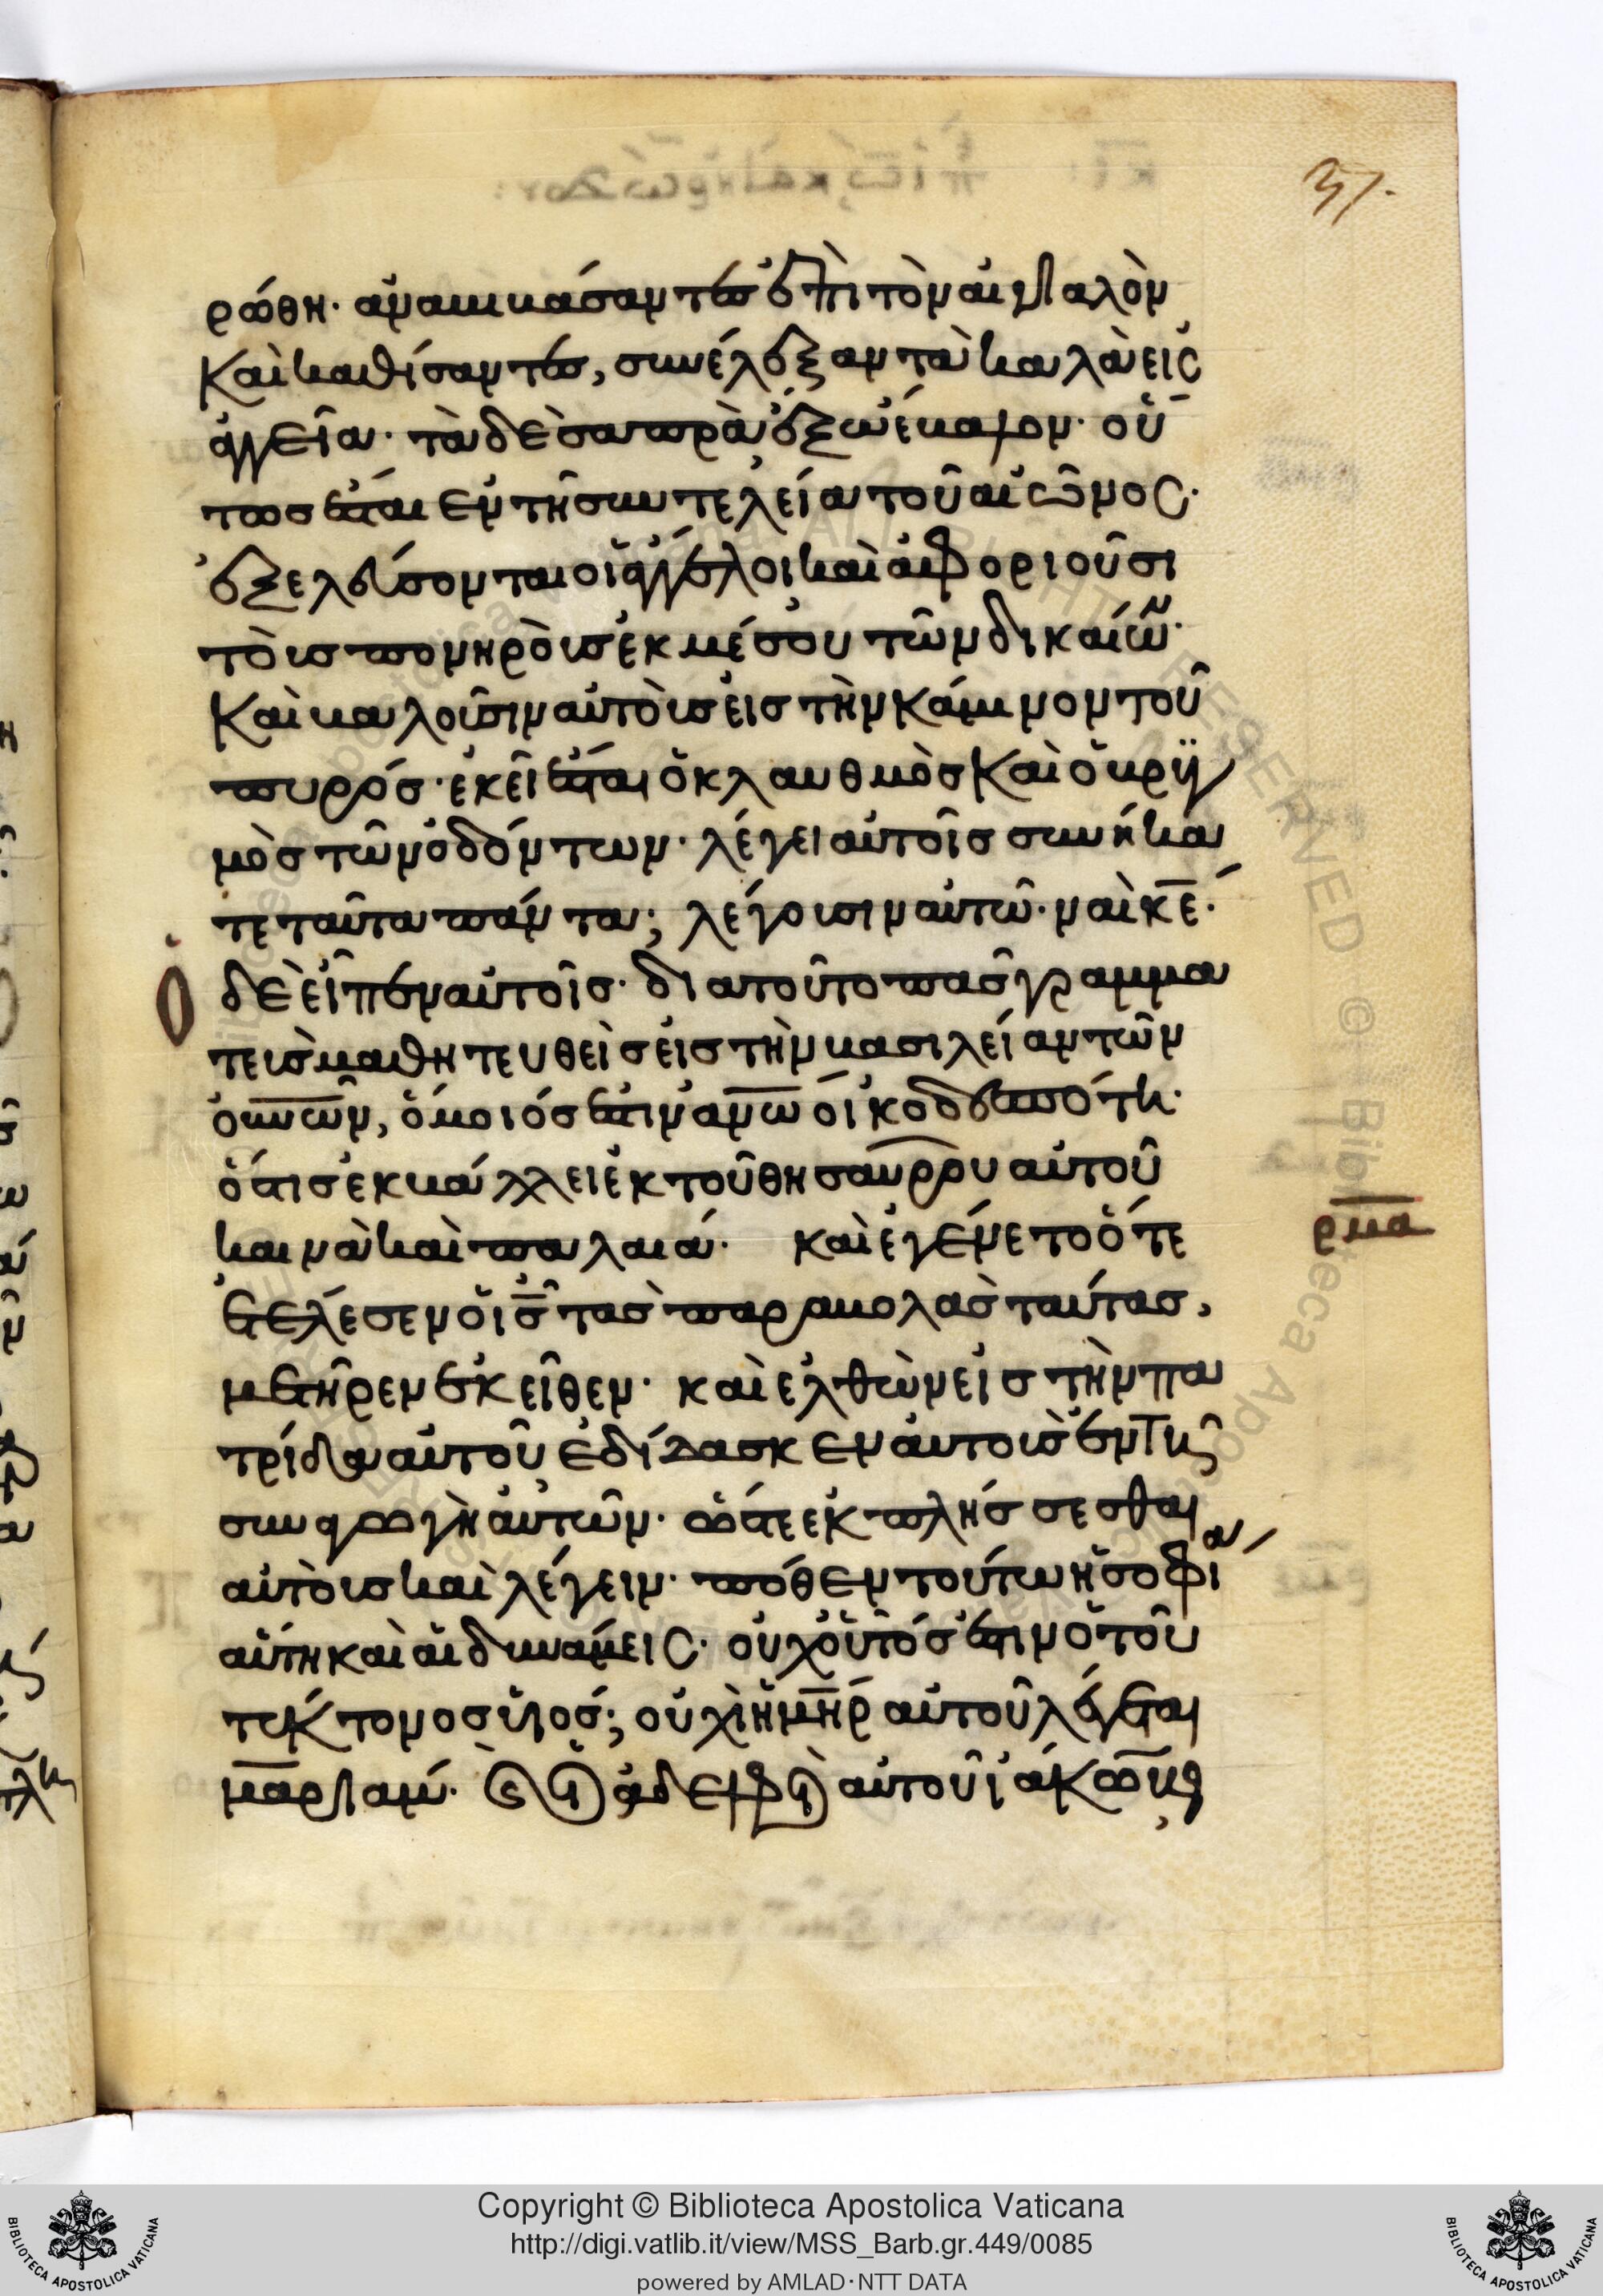 37.
ρώθη· ἀναβιβάσαντες ἐπὶ τὸν αἰγιαλὸν
καὶ καθίσαντες, συνέλεξαν τὰ καλὰ εἰς
ἀγγεῖα· τὰ δὲ σαπρὰ ἔξω ἔβαλον· οὕ
τως ἔσται ἐν τῆ συντελεία τοῦ αἰῶνος·
ἐξελεύσονται οἱ ἄγγελοι καὶ ἀφοριοῦσι
τοὺς πονηροὺς ἐκ μέσου τῶν δικαίων·
καὶ βαλοῦσιν αὐτοὺς εἰς τὴν κάμινον τοῦ
πυρός· ἐκεῖ ἔσται ὁ κλαυθμὸς καὶ ὁ βρυγ
μὸς τῶν ὀδόντων· λέγει αὐτοῖς συνήκα
τε ταῦτα πάντα; λέγουσιν αὐτῶ· ναὶ κ̅ε̅·
ὁ δὲ εἶπεν αὐτοῖς· διατοῦτο πᾶς γραμμα
τεὺς μαθητευθεὶς εἰς τὴν βασιλείαν τῶν
ου̅ν̅ω̅ν, ὅμοιός ἐστιν α̅ν̅ω̅ οἰκοδεσπότη·
ὅστις ἐκβάλλει ἐκ τοῦ θησαυροῦ αὐτοῦ
καινὰ καὶ παλαιά· καὶ ἐγένετο ὅτε
ρκα
ἐτέλεσεν ὁ ι̅ς̅ τὰς παραβολὰς ταύτας,
μετῆρεν ἐκεῖθεν· καὶ ἐλθὼν εἰς τὴν πα
τρίδα αὐτοῦ ἐδίδασκεν αὐτοὺς ἐν τῆ
συναγωγῆ αὐτῶν· ὥστε ἐκπλήσσεσθαι
αὐτοὺς καὶ λέγειν· πόθεν τούτω ἡ σοφία
αὕτη καὶ αἱ δυνάμεις· οὐχ οὗτός ἐστιν ὁ τοῦ
τέκτονος υἱός; οὐχὶ ἡ μ̅η̅ρ αὐτοῦ λέγεται
μαριάμ· καὶ οἱ ἀδελφοὶ αὐτοῦ ἰάκωβος
Copyright © Biblioteca Apostolica Vaticana
http://digi.vatlib.it/view/MSS_Barb.gr.449/0085
powered by AMLAD·NTT DATA
BIBLIOTECA APOSTOLICA VATICANA
BIBLIOTECA APOSTOLICA VATICANA